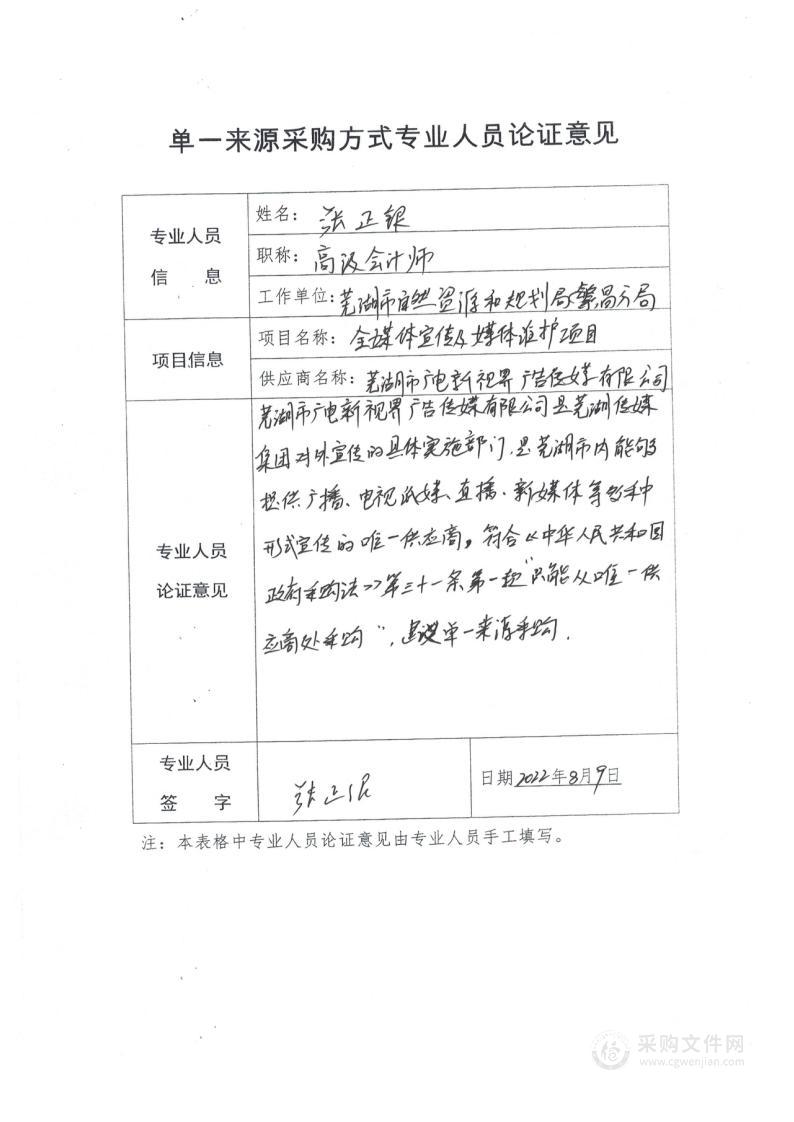 单一来源采购方式专业人员论证意见
专业人员
信 息
姓名：张正银
职称：高级会计师
工作单位：芜湖市自然资源和规划局繁昌分局
项目信息
项目名称：全媒体宣传及媒体维护项目
供应商名称：芜湖市广电新视界广告传媒有限公司
专业人员
论证意见
芜湖市广电新视界广告传媒有限公司是芜湖传媒
集团对外宣传的具体实施部门，是芜湖市内能够
提供广播、电视、直播、新媒体等多种
形式宣传的唯一供应商，符合《中华人民共和国
政府采购法》第三十一条第一款“只能从唯一供
应商处采购”，建议单一来源采购.
专业人员
签 字
张正银
日期2022年8月9日
注：本表格中专业人员论证意见由专业人员手工填写。
采购文件网
www.cgwenjian.com